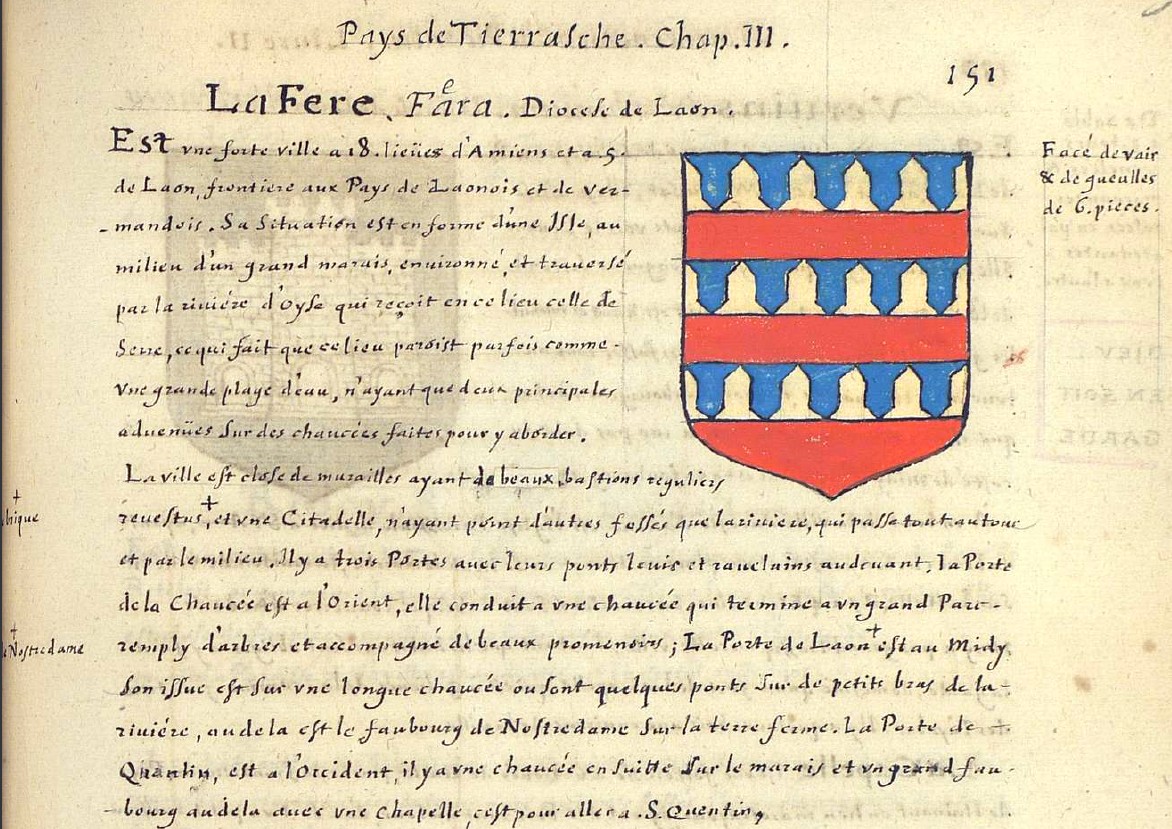 Pays de Tierrasche. Chap. III.
151
La Fere. Fara. Diocese de Laon.
e
Est vne forte ville a 18. lieües d'Amiens et a .5.
de Laon, frontiere aux Pays de Laonois et de Ver-
-mandois. Sa Situation est en forme d'une Isle, au
milieu d'un grand marais, enuironné, et trauersé
par la riviére d'Oyse qui reçoit en ce lieu celle de
Serre, ce qui fait que ce lieu paroist parfois comme-
vne grande plage d'eau, n'ayant que deux principales
aduenües sur des chaucées faites pour y aborder.
Facé de vair
& de gueulles
de 6. pieces.
La ville est close de murailles ayant de beaux bastions reguliers
reuestus +, et vne Citadelle, n'ayant point d'autres fossés que la riviere, qui passe tout autour
+
brique
et par le milieu. Il y a trois Portes auec leurs ponts leuis et rauelains au deuant. La Porte
de la Chaucée est a l'Orient, elle conduit a vne chaucée qui termine a vn grand Parc-
remply d'arbres et accompagné de beaux promenoirs; La Porte de Laon + est au Midy
+
Nostredame
son issue est sur vne longue chaucée ou sont quelques ponts sur de petits bras de la-
riviére, au dela est le faubourg de Nostredame sur la terre ferme. La Porte de-
Quentin, est a l'Occident, il y a vne chaucée en suitte sur le marais et vn grand fau-
-bourg au dela auec vne chapelle, c'est pour aller a . S. Quentin,